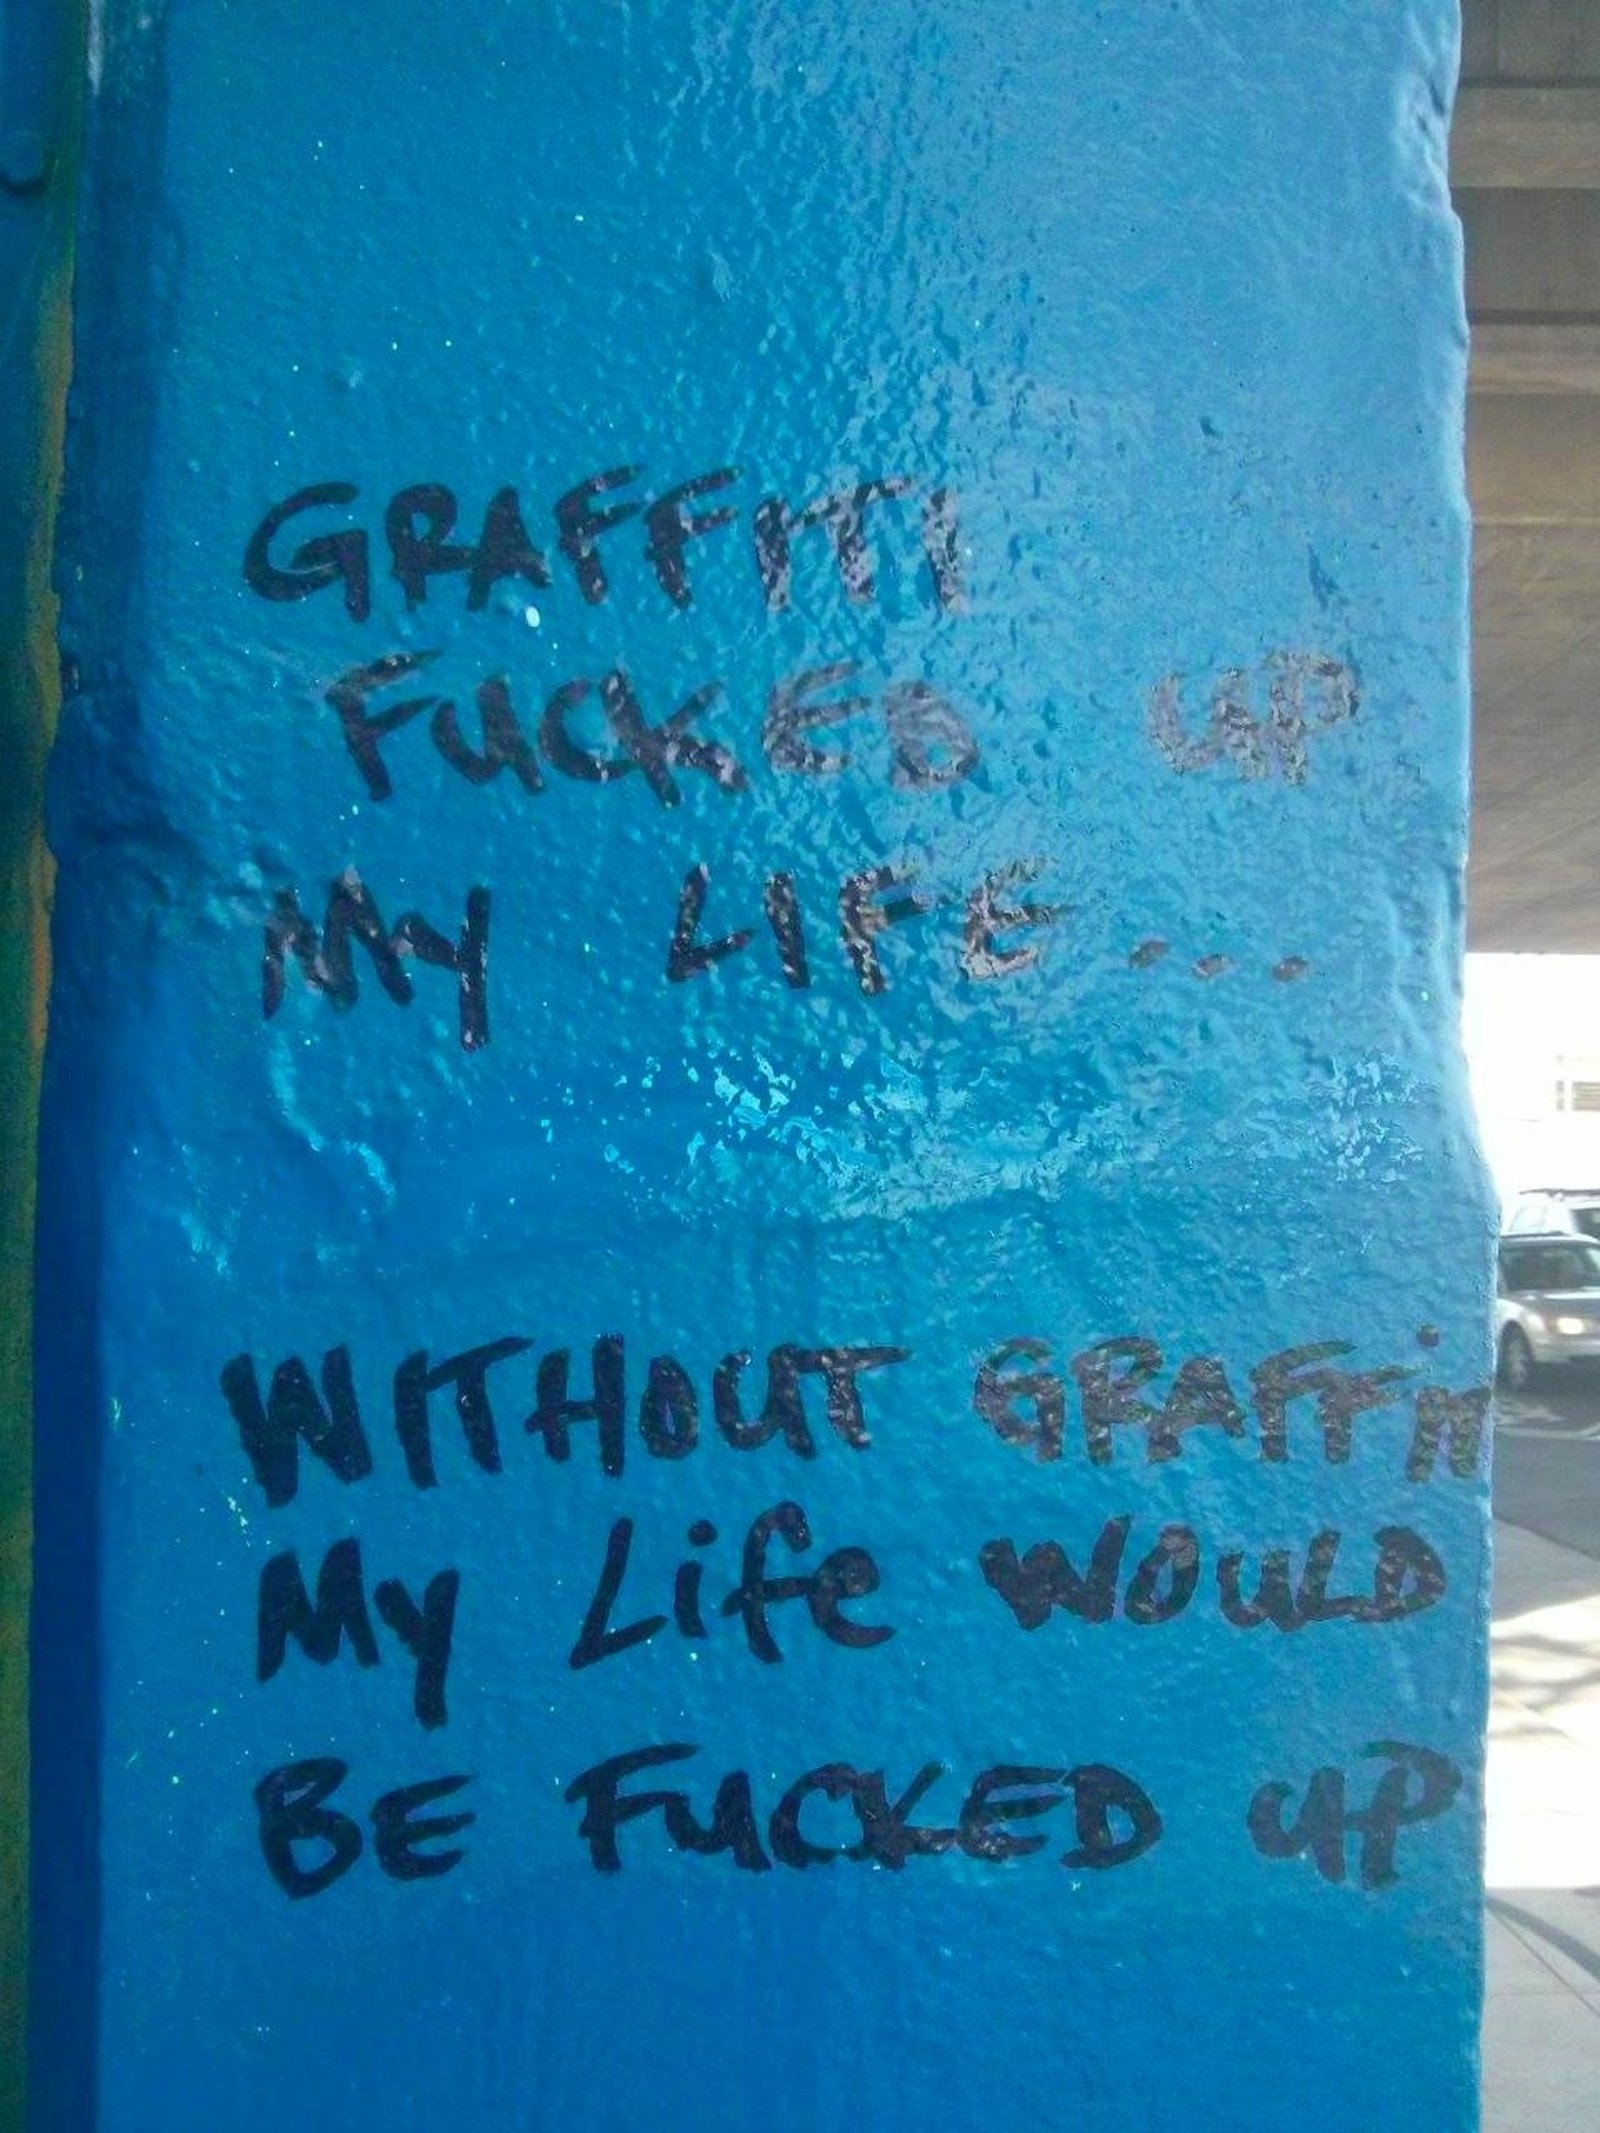 GRAFFITI
FUCKED UP
My LIFE...
WITHOUT GRAFFiTi
My Life WOULD
BE FUCKED UP